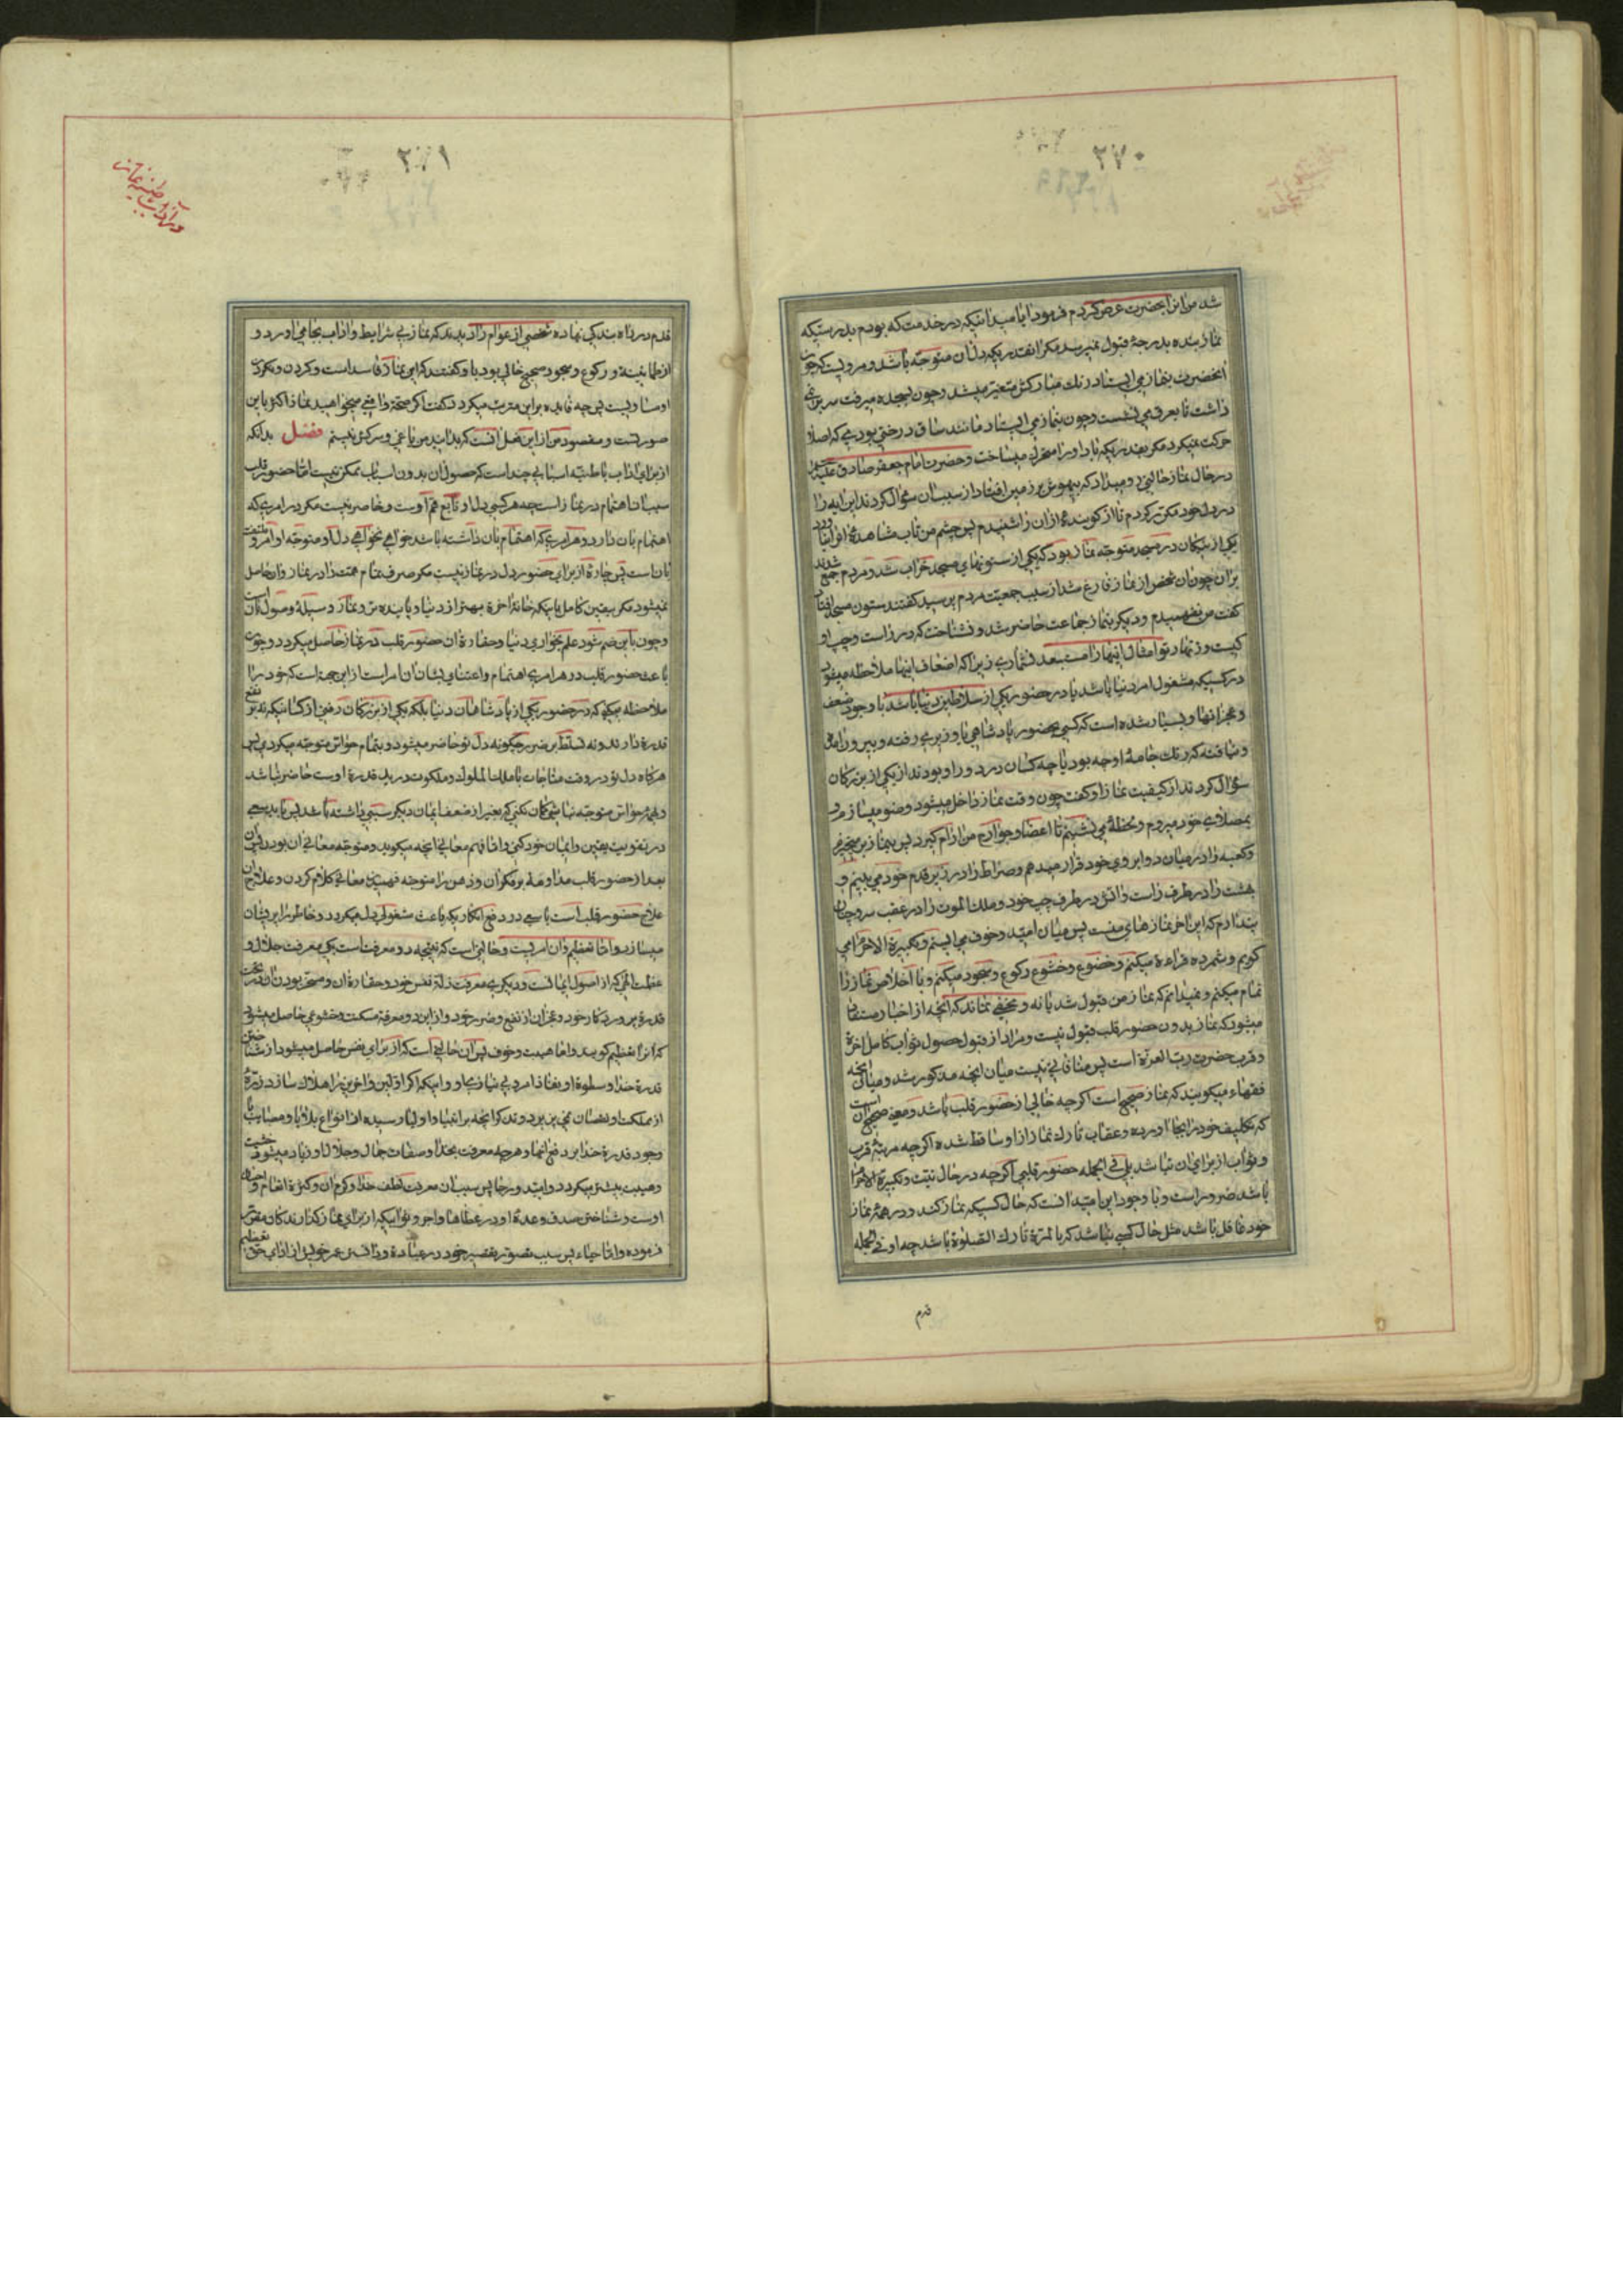 ۲۷۰
شد من این را بحضرت عرض کردم فرمود ایا میدانیکه در خدمت که بودم بدرستیکه
نماز بنده بدرجهٔ قبول نمیرسد مکر انقدریکه دل ان متوجه باشد و مرویست که چون
انحضرت بنماز می ایستاد رنك مبارکش متغیر میشد و چون بسجده میرفت سر بر نمی
داشت تا بعرق می نشست و چون بنماز می ایستاد مانند ساق درختی بود که اصلا
حرکت نمیکرد مکر بقدریکه باد او را متحرك میساخت و حضرت امام جعفر صادق علیه السلام
در حال نماز حالتی رو میداد که بیهوش بر زمین افتاد از سبب ان سؤال کردند این ایه را
در دل خود مکرر کردم تا از کوینده ان را شنیدم پس جسم من تاب مشاهده
یکی از نیکان در مسجد متوجه نماز بود که یکی از ستونهای مسجد خراب شد و مردم جمع شدند
بر ان چون ان شخص از نماز فارغ شد از سبب جمعیت مردم پرسید کفتند ستون مسجد افتاد
کفت من نفهمیدم و دیکر بنماز جماعت حاضر شد و نشناخت که در راست و چپ او
کیست و زنهار تو امثال اینها را مستبعد نشماری زیرا که اضعاف اینها ملاحظه میشود
در کسیکه مشغول امر دنیا باشد یا در حضور یکی از سلاطین دنیا باشد با وجود ضعف
و عجز انها و بسیار شده است که کسی بحضور پادشاهی یا وزیری رفته و بیرون امده
و نیافته که رنك جامهٔ او چه بود یا چه کسان در دور او بودند از یکی از بزرکان
سؤال کردند از کیفیت نماز او کفت چون وقت نماز داخل میشود وضو میسازم و
بمصلای خود میروم و لحظهٔ می نشینم تا اعضا و جوارح من ارام کیرد پس بنماز بر میخیزم
و کعبه را در میان دو ابروی خود قرار میدهم و صراط را در زیر قدم خود می بینم و
بهشت را در طرف راست و اتش در طرف چپ خود و ملك الموت را در عقب سر و چنان
پندارم که این اخر نمازهای منست پس میان امید و خوف می ایستم و تکبیرة الاحرام می
کویم و شمرده قراءة میکنم و خضوع و خشوع رکوع و سجود میکنم و با اخلاص نماز را
تمام میکنم و نمیدانم که نماز من قبول شد یا نه و مخفی نماند که انچه از اخبار مستفاد
میشود که نماز بدون حضور قلب قبول نیست و مراد از قبول حصول ثواب کامل اخرة
و قرب حضرت رب العزة است پس منافاتی نیست میان انچه مذکور شد و میان انچه
فقهاء میکویند که نماز صحیح است اکرچه خالی از حضور قلب باشد و معنی صحیح ان است
که تکلیف خود را بجا اورده و عقاب تارك نماز از او ساقط شده اکرچه مرتبهٔ قرب
و ثواب از برای ان نباشد بلی فی الجمله حضور قلبی اکرچه در حال نیت و تکبیرة الاحرام
باشد ضرور است و با وجود این امید انست که حال کسیکه نماز کند و در همهٔ نماز
خود غافل باشد مثل حال کسی نباشد که بالمرة تارك الصلوة باشد چه او فی الجمله
قدم
۲۷۱
در آداب باطنیه نماز
قدم در راه بندکی نهاده شخصی از عوام را دیدند که نماز بی شرایط و اداب بجا می اورد و
از طمانینه و رکوع و سجود صحیح خالی بود باو کفتند که این نماز فاسد است و کردن و نکردن
او مساویست پس چه فایده بر این مترتب میکردد کفت اکر صحة واقعی میخواهید نماز اکثر باین
صورتست و مقصود من از این فعل انست که بداند من یاغی و سرکش نیستم فصل بدانکه
از برای اداب باطنیه اسبابی چند است که حصول ان بدون اسباب ممکن نیست اما حضور قلب
سبب ان اهتمام در نماز است چه هر کسی دل او تابع هم اوست و حاضر نیست مکر در امری که
اهتمام بان دارد و هر امری که اهتمام بان داشته باشد خواهی نخواهی دل او متوجه او و ملتفت
بان است پس چارة از برای حضور دل در نماز نیست مکر صرف تمام همت را در نماز و ان حاصل
نمیشود مکر بیقین کامل باینکه خانهٔ اخرة بهتر از دنیا و پاینده تر و نماز وسیلهٔ وصول بان است
و چون باین ضم شود علم بخواری دنیا و حقارة ان حضور قلب در نماز حاصل میکردد و چون
باعث حضور قلب در هر امری اهتمام و اعتنای بشان ان امر است از این جهة است که خود را
ملاحظه میکنی که در حضور یکی از پادشاهان دنیا بلکه یکی از بزرکان زمین از کسانیکه نه بر نفع
قدرة دارند و نه تسلط بر ضرر چکونه دل تو حاضر میشود و بتمام حواس متوجه میکردی پس
هرکاه دل تو در وقت مناجات با ملك الملوك و ملکوت در ید قدرة اوست حاضر نباشد
و همهٔ حواس متوجه نباشی کمان نکنی که بغیر از ضعف ایمان دیکر سببی داشته باشد پس باید سعی
در تقویت یقین و ایمان خود کنی و اما فهم معانی انچه میکوید و متوجه معانی ان بودن پس ان
بعد از حضور قلب مداومة بر فکر ان و ذهن را متوجه فهمیدن معانی کلام کردن و علاج ان
علاج حضور قلب است با سعی در دفع افکاریکه باعث مشغولی دل میکردد و خاطر را پریشان
میسازد و اما تعظیم و ان امریست و حالتی است که نتیجه دو معرفت است یکی معرفت جلال و
عظمت الهی که از اصول ایمانست و دیکری معرفت ذلة نفس خود و حقارة ان و مسخر بودن ان در تحت
قدرة پروردکار خود و عجز ان از نفع و ضرر خود و از این دو معرفة مسکنت و خشوعی حاصل میشود
که انرا تعظیم کویند و اما هیبت و خوف پس ان حالتی است که از برای نفس حاصل میشود از شناختن
قدرة خدا و سطوة او و نفاذ امر و بی نیازی او و اینکه اکر اولین و اخرین را هلاك سازد ذرهٔ
از مملکت او نقصان نمی پذیرد و تذکر انچه بر انبیا و اولیا رسیده از انواع بلایا و مصایب با
وجود قدرة خدا بر دفع انها و هرچه معرفت بخدا و صفات جمال و جلال او زیاد میشود خشیت
و هیبت بیشتر میکردد و امید و رجا پس سبب ان معرفت لطف خدا و کرم ان و کثرة انعام و احسان
اوست و شناختن صدق وعدهٔ او در عطاها و اجر و ثوابیکه از برای نماز کذارندکان مقرر
فرموده و اما حیاء پس سبب تصور تقصیر خود در عبادة و دانستن عجز خویش از ادای حق تعظیم